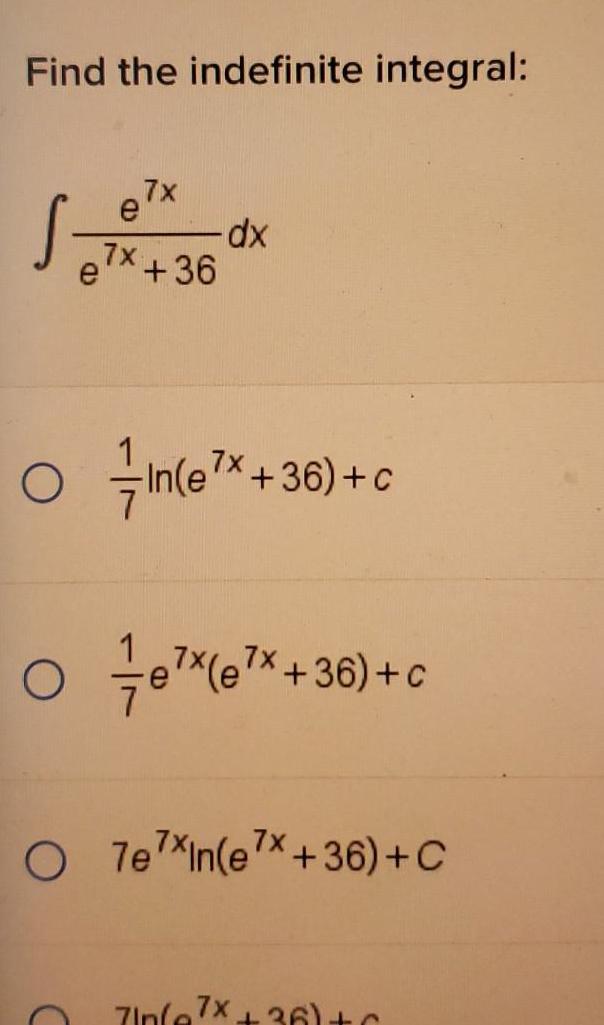 Find the indefinite integral:
∫ e^7x / (e^7x + 36) dx
1/7 ln(e^7x + 36) + c
1/7 e^7x(e^7x + 36) + c
7e^7x ln(e^7x + 36) + C
7ln(e^7x + 36) + c